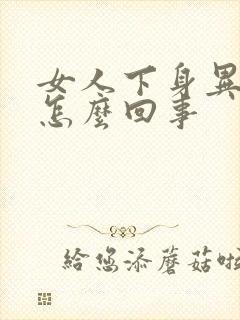 女人下身異
怎麼回事
給您添蘑菇啦